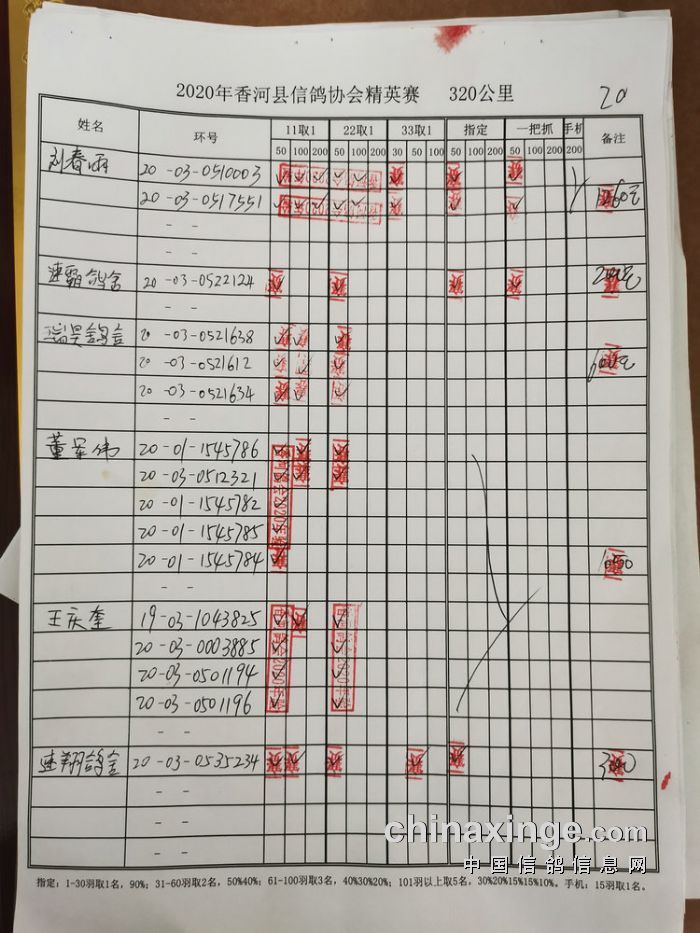 2020年香河县信鸽协会精英赛 320公里 20
姓名 环号 11取1 22取1 33取1 指定 一把抓 手机 备注
50 100 200 50 100 200 30 50 100 50 100 200 50 100 200 200
刘春雨 20-03-0510003
20-03-0517551
- -
- -
速霸鸽舍 20-03-0522124
- -
瑞昊鸽舍 20-03-0521638
20-03-0521612
20-03-0521634
- -
董军伟 20-01-1545786
20-03-0512321
20-01-1545782
20-01-1545785
20-01-1545784
- -
王庆奎 19-03-1043825
20-03-0003885
20-03-0501194
20-03-0501196
- -
速翔鸽舍 20-03-0535234
- -
- -
- -
chinaxinge.com
中国信鸽信息网
指定：1-30羽取1名，90%；31-60羽取2名，50%40%；61-100羽取3名，40%30%20%；101羽以上取5名，30%20%15%15%10%。手机：15羽取1名。